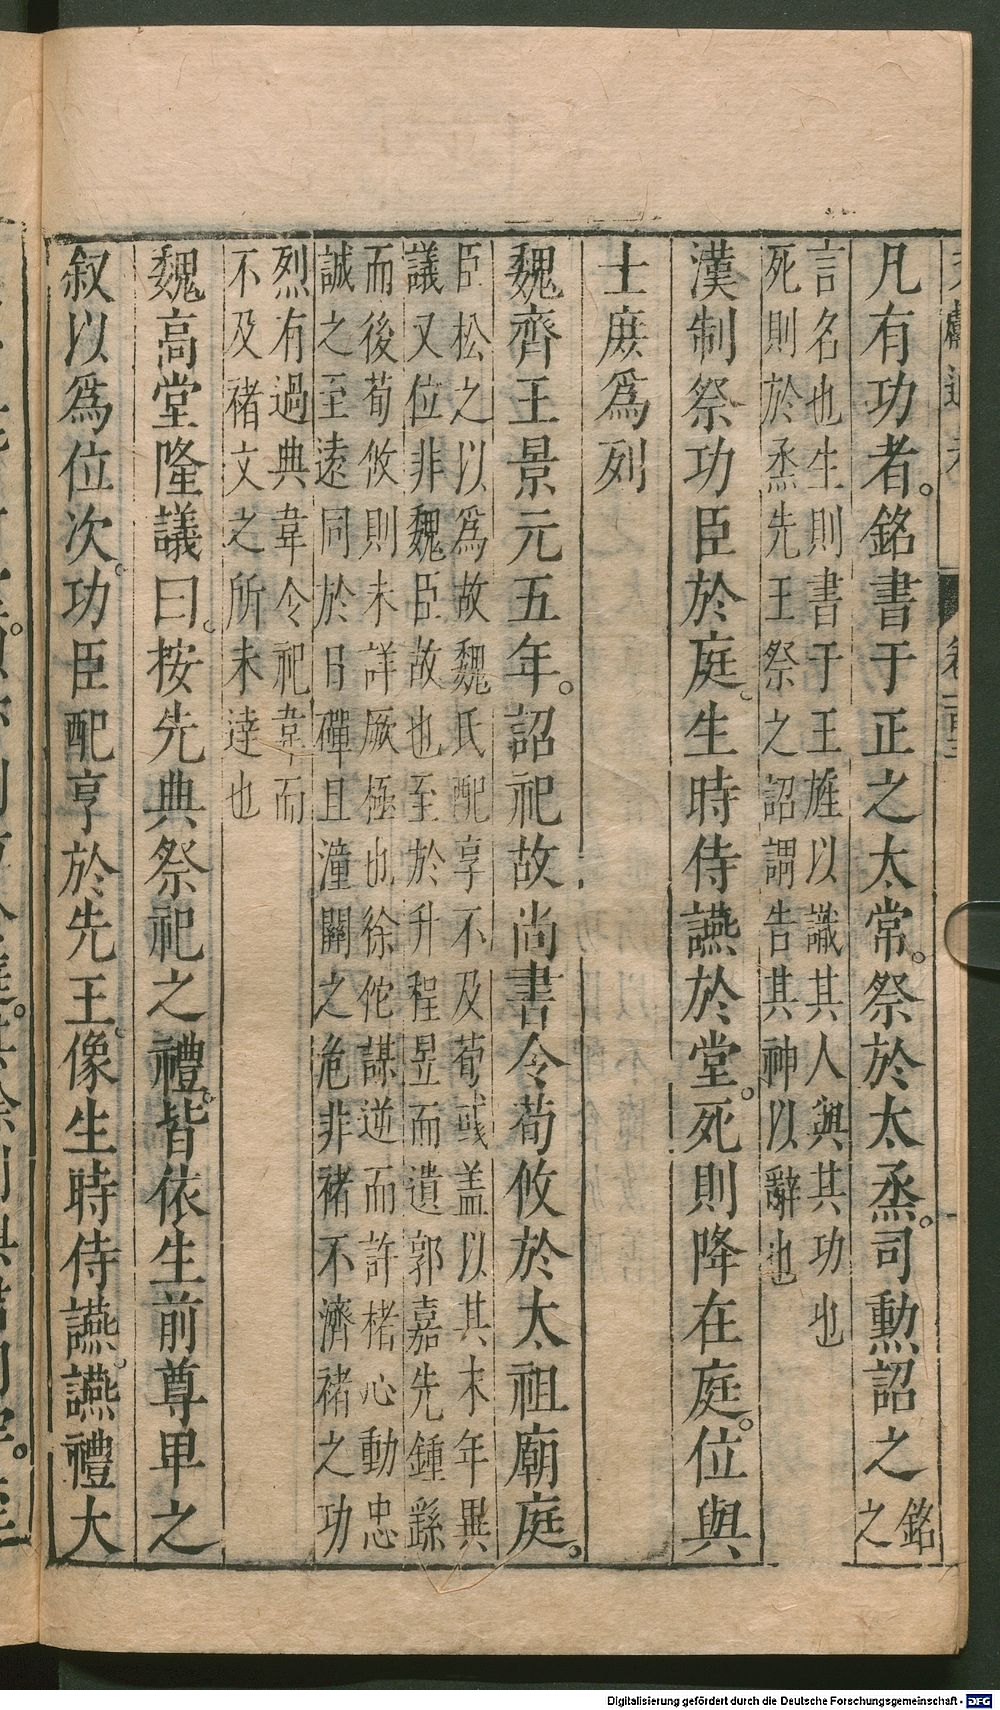 凡有功者。銘書于正之太常。祭於太烝。司勲詔之銘之
言名也生則書于王旌以識其人與其功也
死則於烝先王祭之詔謂告其神以辭也
漢制祭功臣於庭。生時侍讌於堂。死則降在庭。位與
士庶爲列
魏齊王景元五年。詔祀故尚書令荀攸於太祖廟庭。
臣松之以爲故魏氏配享不及荀彧盖以其末年異
議又位非魏臣故也至於升程昱而遺郭嘉先鍾繇
而後荀攸則未詳厥極也徐佗謀逆而許楮心動忠
誠之至遠同於日磾且潼關之危非褚不濟褚之功
烈有過典韋令祀韋而
不及褚文之所未達也
魏高堂隆議曰。按先典祭祀之禮。皆依生前尊卑之
叙以爲位次。功臣配亨於先王。像生時侍讌。讌禮大
Digitalisierung gefördert durch die Deutsche Forschungsgemeinschaft - DFG